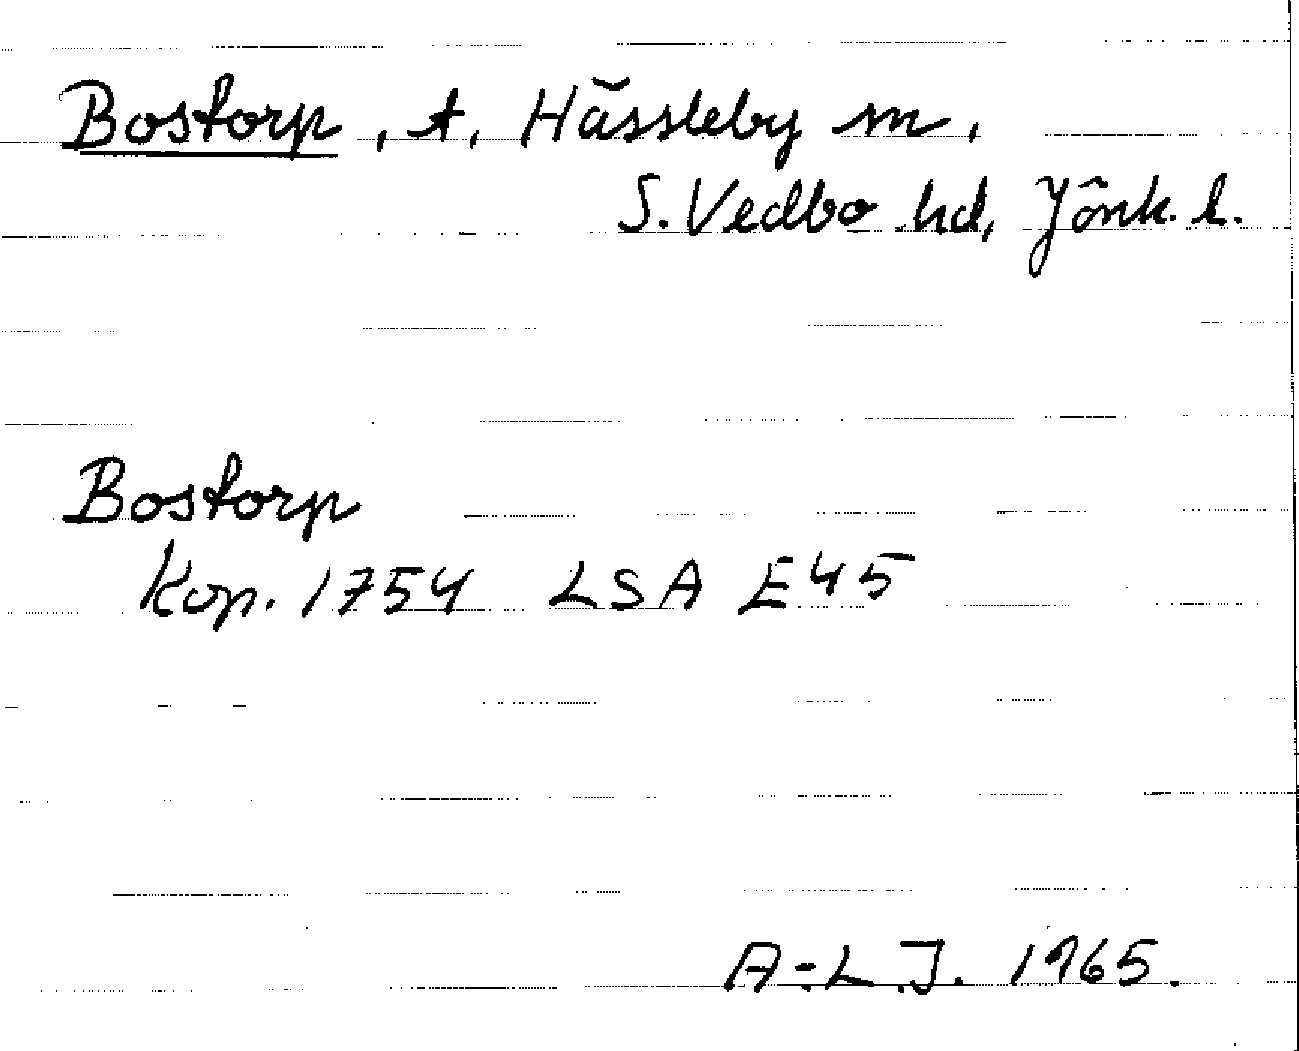 Bostorp, t, Hässleby sn,
S. Vedbo hd, Jönk. l.
Bostorp
Kop. 1754 LSA E45
A-L.J. 1965.